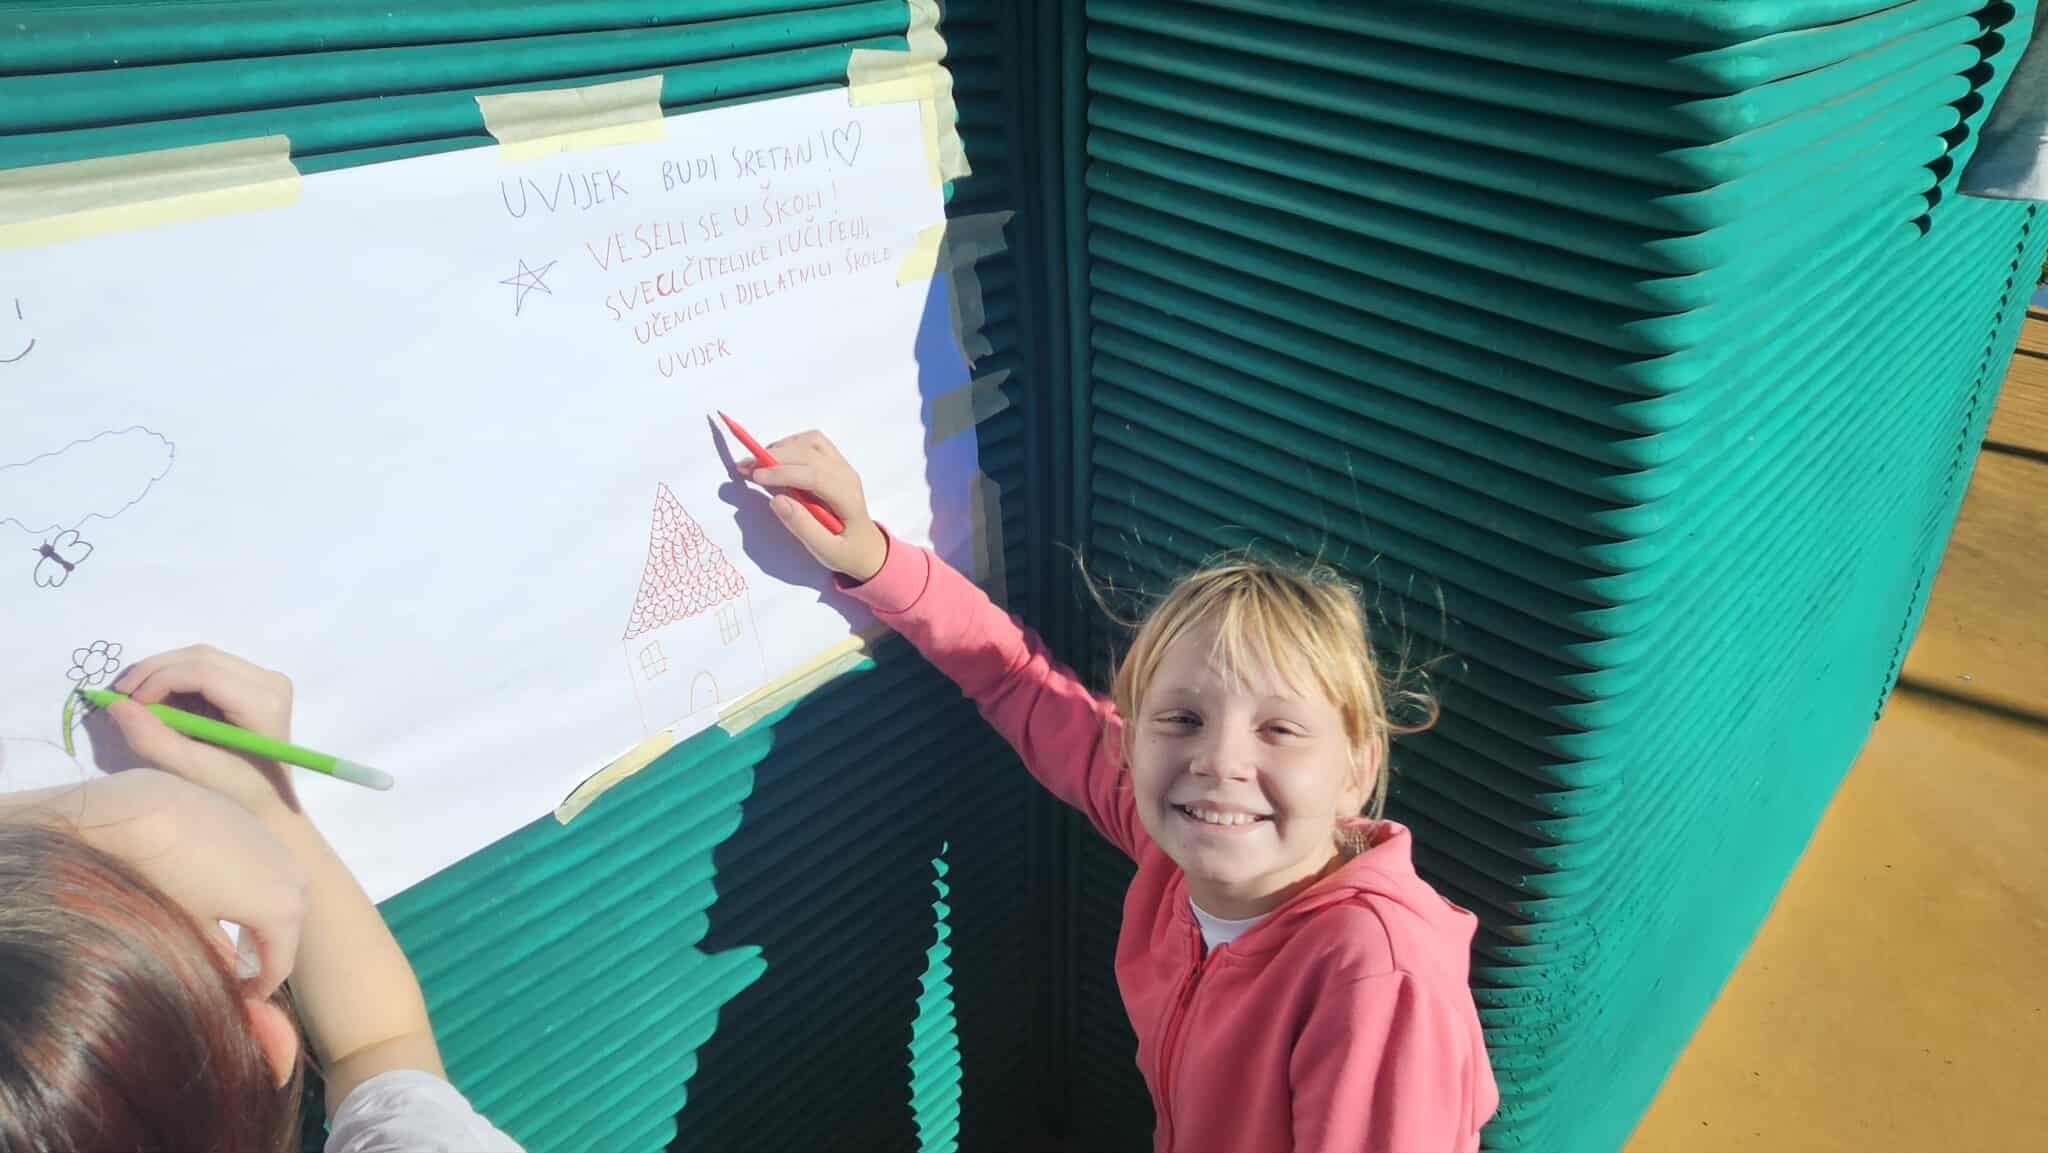 UVIJEK BUDI SRETAN!
VESELI SE U ŠKOLI!
SVE UČITELJICE I UČITELJI,
UČENICI I DJELATNICI ŠKOLE
UVIJEK